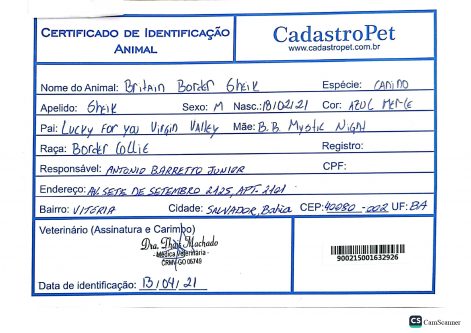 CERTIFICADO DE IDENTIFICAÇÃO ANIMAL
CadastroPet
www.cadastropet.com.br
Nome do Animal: Britain Border Sheik Espécie: CANINO
Apelido: Sheik Sexo: M Nasc.: 13/02/21 Cor: AZUL MERLE
Pai: Lucky For you Virgin Valley Mãe: B.B. Mystic Night
Raça: Border Collie Registro:
Responsável: ANTONIO BARRETTO JUNIOR CPF:
Endereço: AV. SETE DE SETEMBRO 2125, APT. 2101
Bairro: VITÓRIA Cidade: SALVADOR, Bahia CEP: 40080-002 UF: BA
Veterinário (Assinatura e Carimbo)
Dra. Thaís Machado
Médica Veterinária
CRMV-GO 06749
900215001632926
Data de identificação: 13/04/21
CS CamScanner